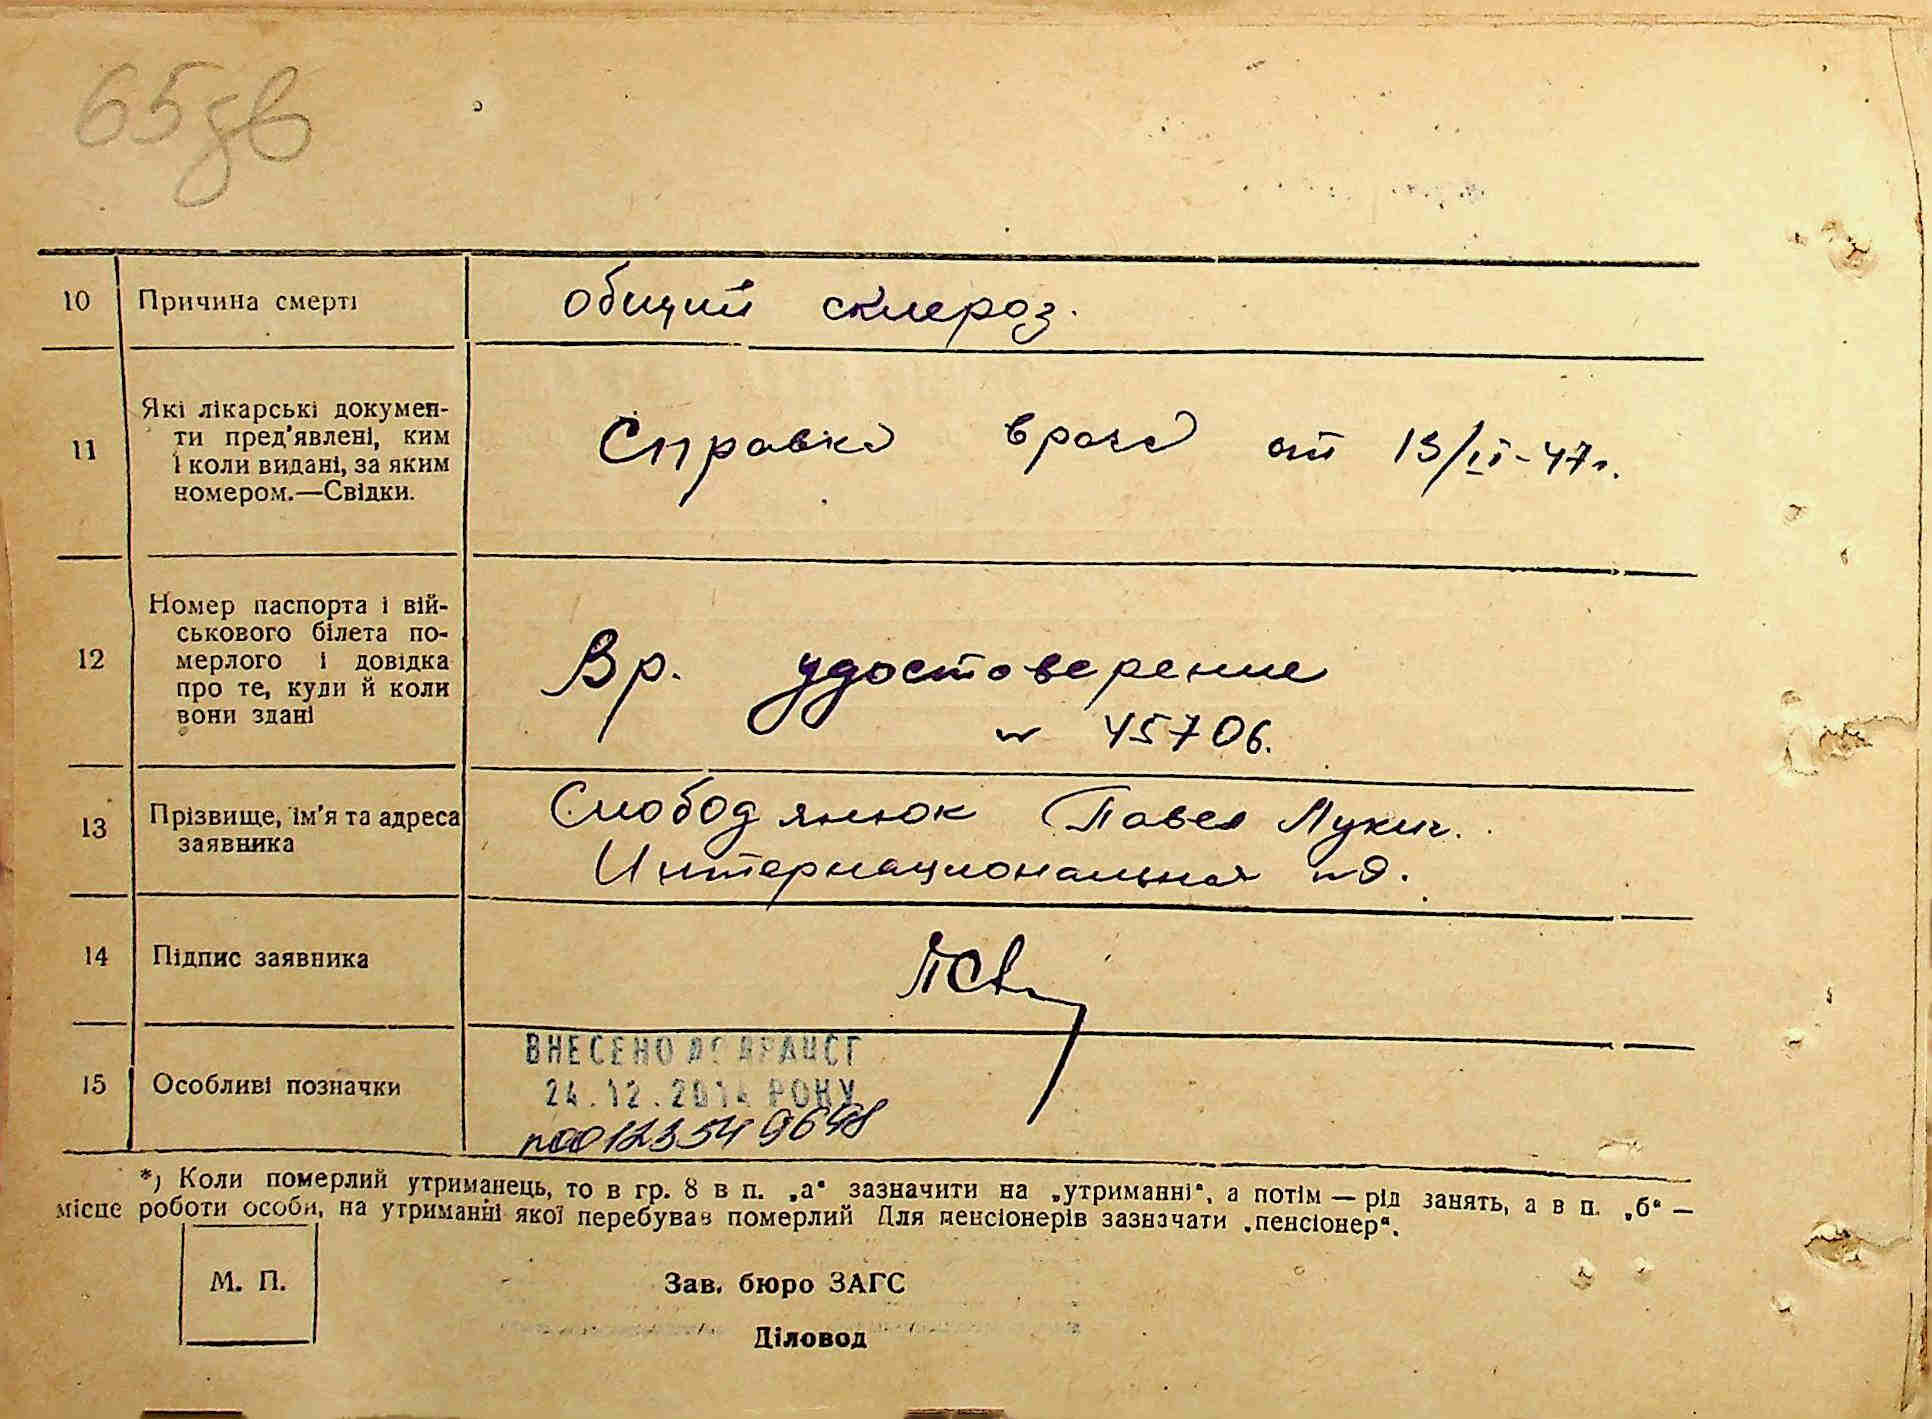 65зв
10 Причина смерті общий склероз.
11 Які лікарські докумен-
ти пред'явлені, ким
і коли видані, за яким
номером.—Свідки.
Справка врача от 13/II-47г.
12 Номер паспорта і вій-
ськового білета по-
мерлого і довідка
про те, куди й коли
вони здані
Вр. удостоверение
№ 45706.
13 Прізвище, ім'я та адреса
заявника
Слободянюк Павел Лукич.
Интернациональная №9.
14 Підпис заявника
15 Особливі позначки
ВНЕСЕНО ДО ДРАЦСГ
24.12.2014 РОКУ
*) Коли померлий утриманець, то в гр. 8 в п. „а“ зазначити на „утриманні“, а потім — рід занять, а в п. „б“ —
місце роботи особи, на утриманні якої перебував померлий Для пенсіонерів зазначати „пенсіонер“.
М. П.
Зав. бюро ЗАГС
Діловод